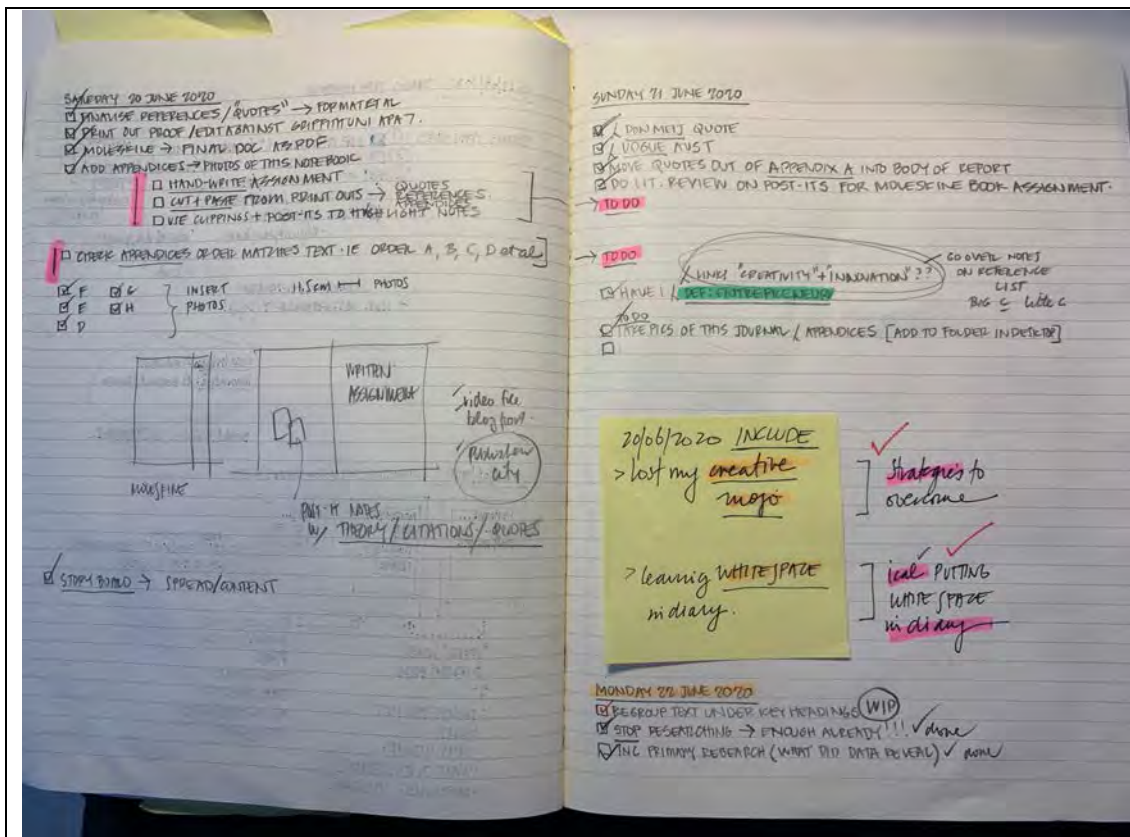 SATURDAY 20 JUNE 2020
FINALISE REFERENCES / "QUOTES" → FORMAT ETAL
PRINT OUT PROOF / EDIT AGAINST GRIFFITH UNI APA 7.
MOLESKINE → FINAL DOC AS PDF
ADD APPENDICES → PHOTOS OF THIS NOTEBOOK
HAND-WRITE ASSIGNMENT
CUT + PASTE FROM PRINT OUTS → QUOTES
REFERENCES
APPENDICES
USE CLIPPINGS + POST-ITS TO HIGHLIGHT NOTES
CHECK APPENDICES ORDER MATCHES TEXT. IE ORDER A, B, C, D etal
F G INSERT 11.5cm PHOTOS
E H PHOTOS
D
WRITTEN
ASSIGNMENT
video file
blog post.
city
MOLESKINE
POST-IT NOTES
W/ THEORY / CITATIONS / QUOTES
STORY BOARD → SPREAD/CONTENT
SUNDAY 21 JUNE 2020
DON MEIJ QUOTE
VOGUE AUST
MOVE QUOTES OUT OF APPENDIX A INTO BODY OF REPORT
DO LIT. REVIEW ON POST-ITS FOR MOLESKINE BOOK ASSIGNMENT.
→ TO DO
→ TO DO
LINKS "CREATIVITY" + "INNOVATION" ??
GO OVER NOTES
ON REFERENCE
LIST
BIG C little c
HAVE I / DEF: ENTREPRENEUR
TO DO
TAKE PICS OF THIS JOURNAL / APPENDICES [ADD TO FOLDER IN DESKTOP]
20/06/2020 INCLUDE
> lost my creative
mojo
Strategies to
overcome
> learning WHITE SPACE
in diary.
ical PUTTING
WHITE SPACE
in diary
MONDAY 22 JUNE 2020
REGROUP TEXT UNDER KEY HEADINGS WIP
STOP RESEARCHING → ENOUGH ALREADY!!! ✓ done
INC PRIMARY RESEARCH (WHAT DID DATA REVEAL) ✓ done